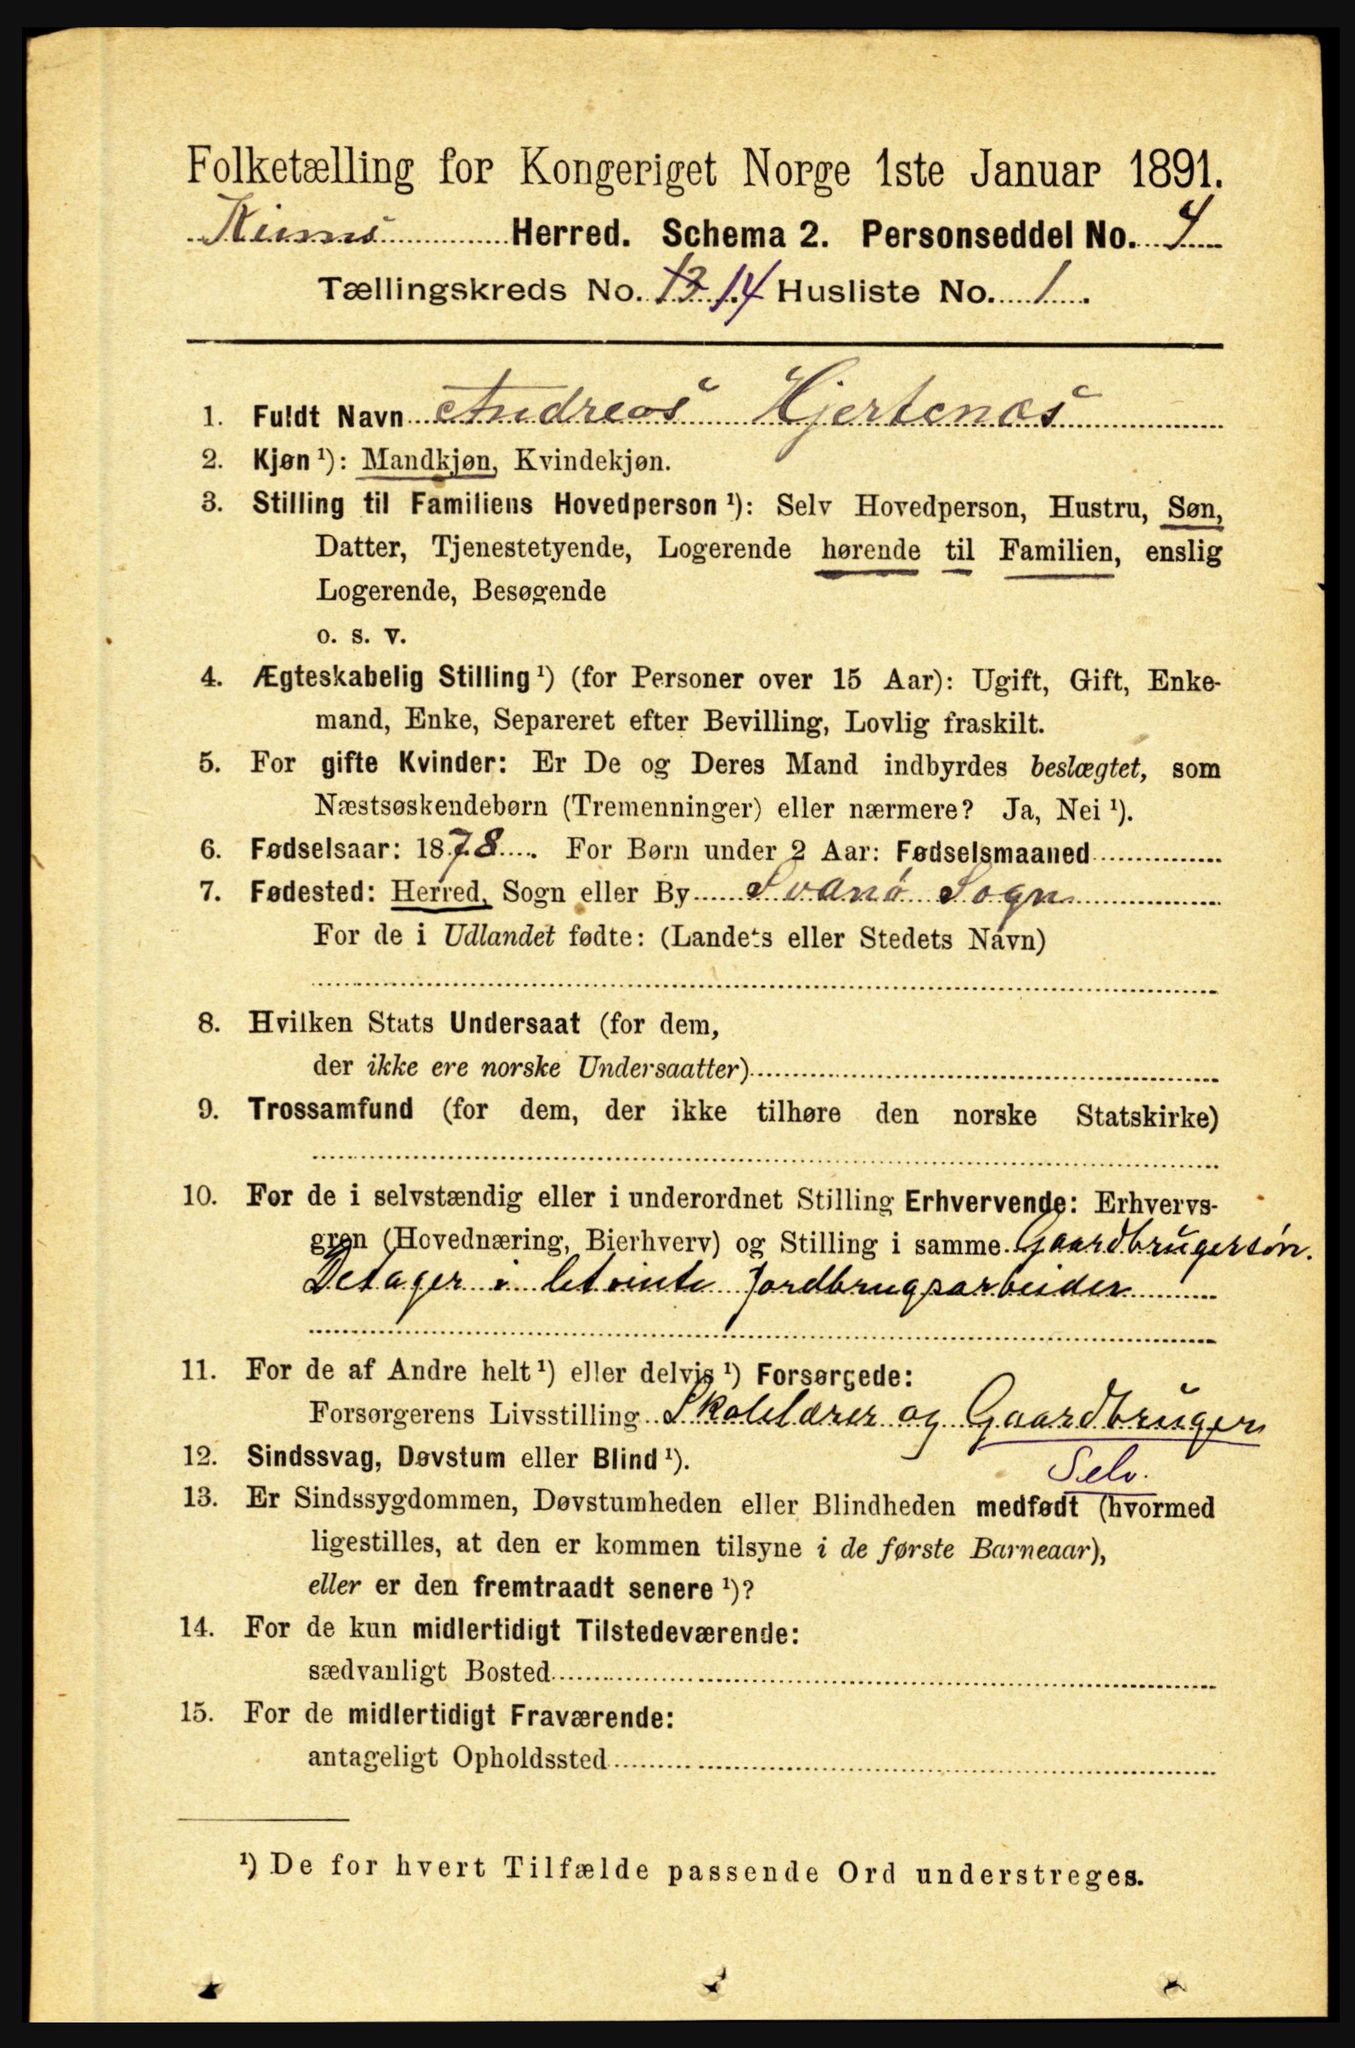 Folketælling for Kongeriget Norge 1ste Januar 1891.
Kinns Herred. Schema 2. Personseddel No. 4
Tællingskreds No. 13 14 Husliste No. 1.
1. Fuldt Navn Andreas Hjertenæs
2. Kjøn ¹): Mandkjøn, Kvindekjøn.
3. Stilling til Familiens Hovedperson ¹): Selv Hovedperson, Hustru, Søn,
Datter, Tjenestetyende, Logerende hørende til Familien, enslig
Logerende, Besøgende
o. s. v.
4. Ægteskabelig Stilling ¹) (for Personer over 15 Aar): Ugift, Gift, Enke-
mand, Enke, Separeret efter Bevilling, Lovlig fraskilt.
5. For gifte Kvinder: Er De og Deres Mand indbyrdes beslægtet, som
Næstsøskendebørn (Tremenninger) eller nærmere? Ja, Nei ¹).
6. Fødselsaar: 1878. For Børn under 2 Aar: Fødselsmaaned
7. Fødested: Herred, Sogn eller By Svanø Sogn
For de i Udlandet fødte: (Landets eller Stedets Navn)
8. Hvilken Stats Undersaat (for dem,
der ikke ere norske Undersaatter)
9. Trossamfund (for dem, der ikke tilhøre den norske Statskirke)
10. For de i selvstændig eller i underordnet Stilling Erhvervende: Erhvervs-
gren (Hovednæring, Bierhverv) og Stilling i samme Gaardbrugersøn.
Detager i letvinte Jordbrugsarbeider
11. For de af Andre helt ¹) eller delvis ¹) Forsørgede:
Forsørgerens Livsstilling Skolelærer og Gaardbruger
12. Sindssvag, Døvstum eller Blind ¹).
Selv.
13. Er Sindssygdommen, Døvstumheden eller Blindheden medfødt (hvormed
ligestilles, at den er kommen tilsyne i de første Barneaar),
eller er den fremtraadt senere ¹)?
14. For de kun midlertidigt Tilstedeværende:
sædvanligt Bosted
15. For de midlertidigt Fraværende:
antageligt Opholdssted
¹) De for hvert Tilfælde passende Ord understreges.